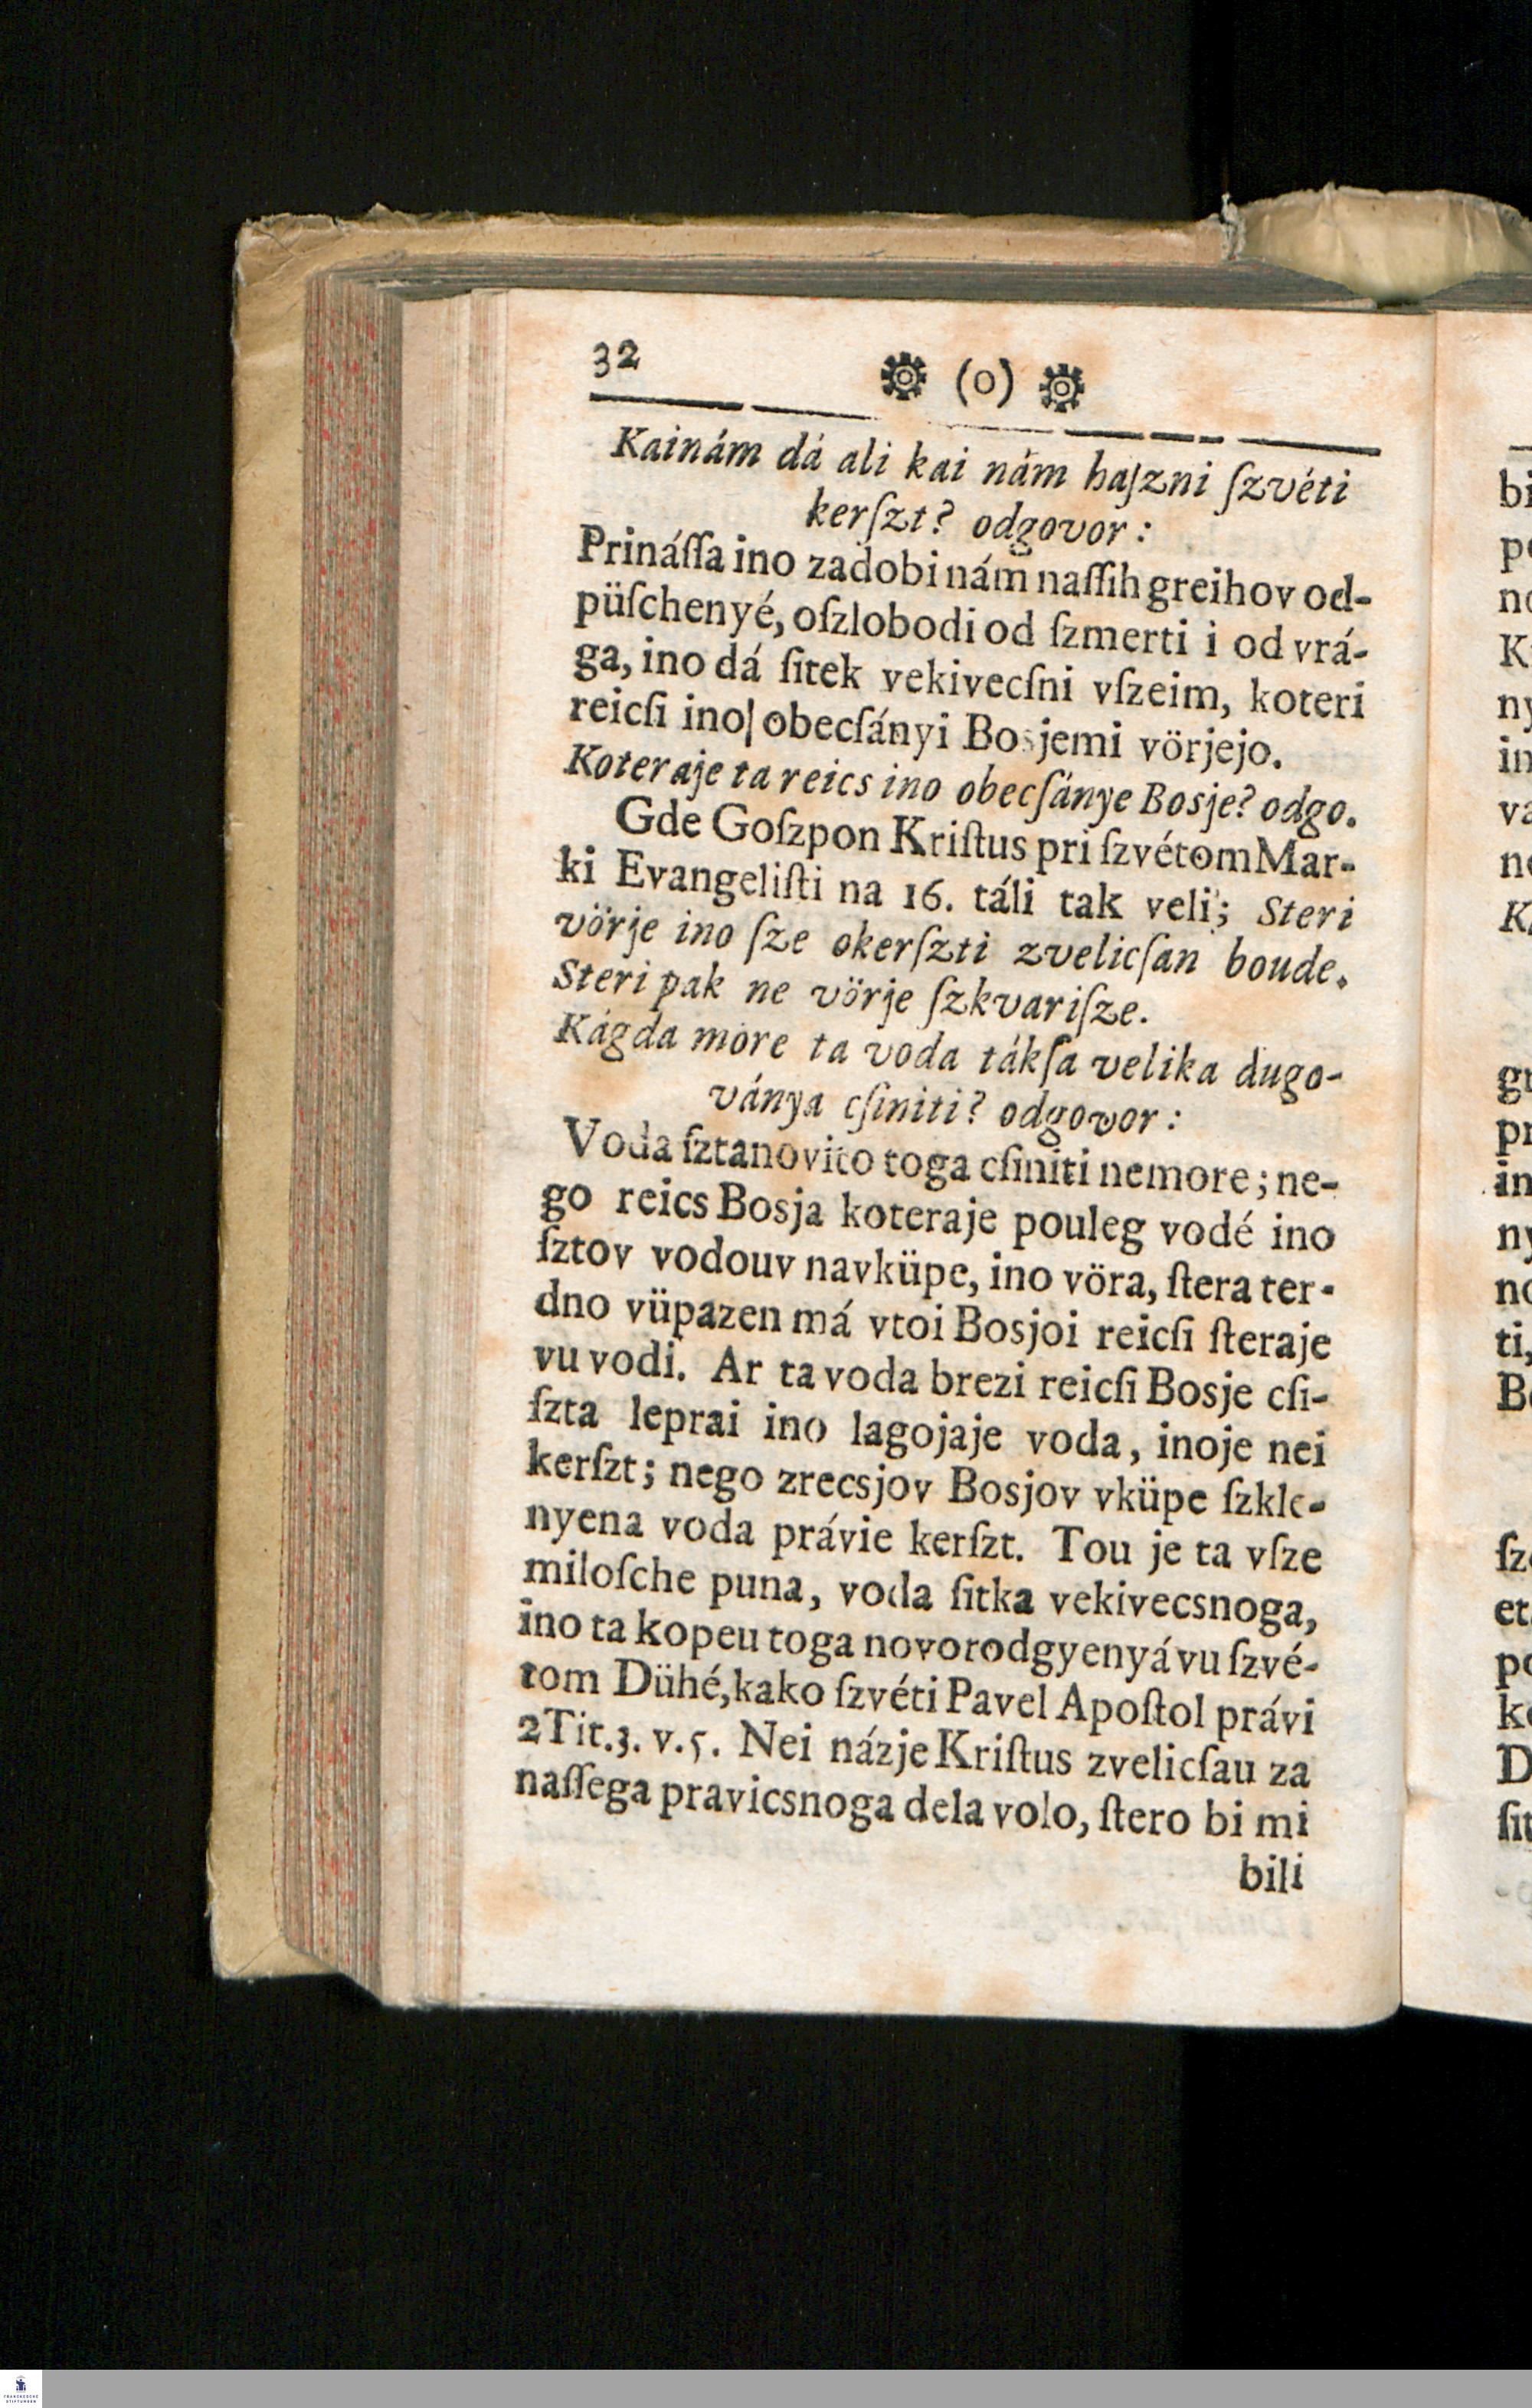 32 (o)
Kainám dá ali kai nám haſzni ſzvéti
kerſzt? odgovor:
Prináſſa ino zadobi nám naſſih greihov od-
püſchenyé, oſzlobodi od ſzmerti i od vrá-
ga, ino dá ſitek vekivecſni vſzeim, koteri
reicſi ino| obecſányi Bosjemi vörjejo.
Koteraje ta reics ino obecſánye Bosje? odgo.
Gde Goſzpon Kriſtus pri ſzvétom Mar-
ki Evangeliſti na 16. táli tak veli; Steri
vörje ino ſze okerſzti zvelicſan boude.
Steri pak ne vörje ſzkvariſze.
Kágda more ta voda tákſa velika dugo-
ványa cſiniti? odgovor:
Voda ſztanovito toga cſiniti nemore; ne-
go reics Bosja koteraje pouleg vodé ino
ſztov vodouv navküpe, ino vöra, ſtera ter-
dno vüpazen má vtoi Bosjoi reicſi ſteraje
vu vodi. Ar ta voda brezi reicſi Bosje cſi-
ſzta leprai ino lagojaje voda, inoje nei
kerſzt; nego zrecsjov Bosjov vküpe ſzkle-
nyena voda právie kerſzt. Tou je ta vſze
miloſche puna, voda ſitka vekivecsnoga,
ino ta kopeu toga novorodgyenyá vu ſzvé-
tom Dühé, kako ſzvéti Pavel Apoſtol právi
2Tit.3. v.5. Nei názje Kriſtus zvelicſau za
naſſega pravicsnoga dela volo, ſtero bi mi
bili